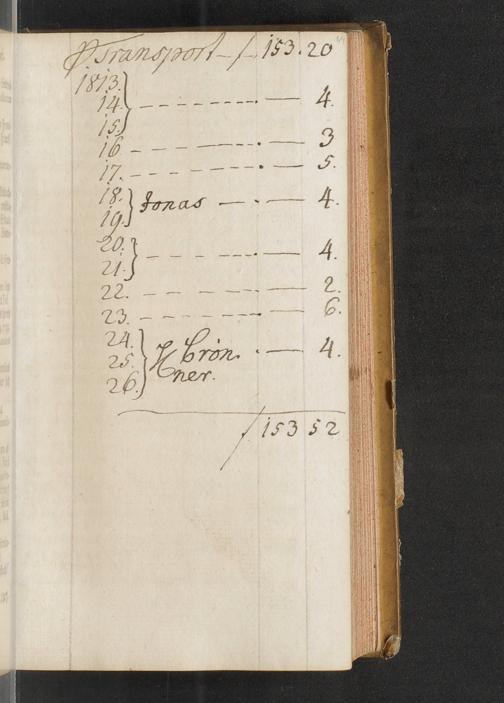 Transport — ƒ 153.20
1813.
14. — 4.
15.
16 — 3
17. — 5.
18. Jonas — 4.
19.
20. — 4.
21.
22. — 2.
23. — 6.
24.
25. Crön. — 4.
26. ner.
ƒ 153 52